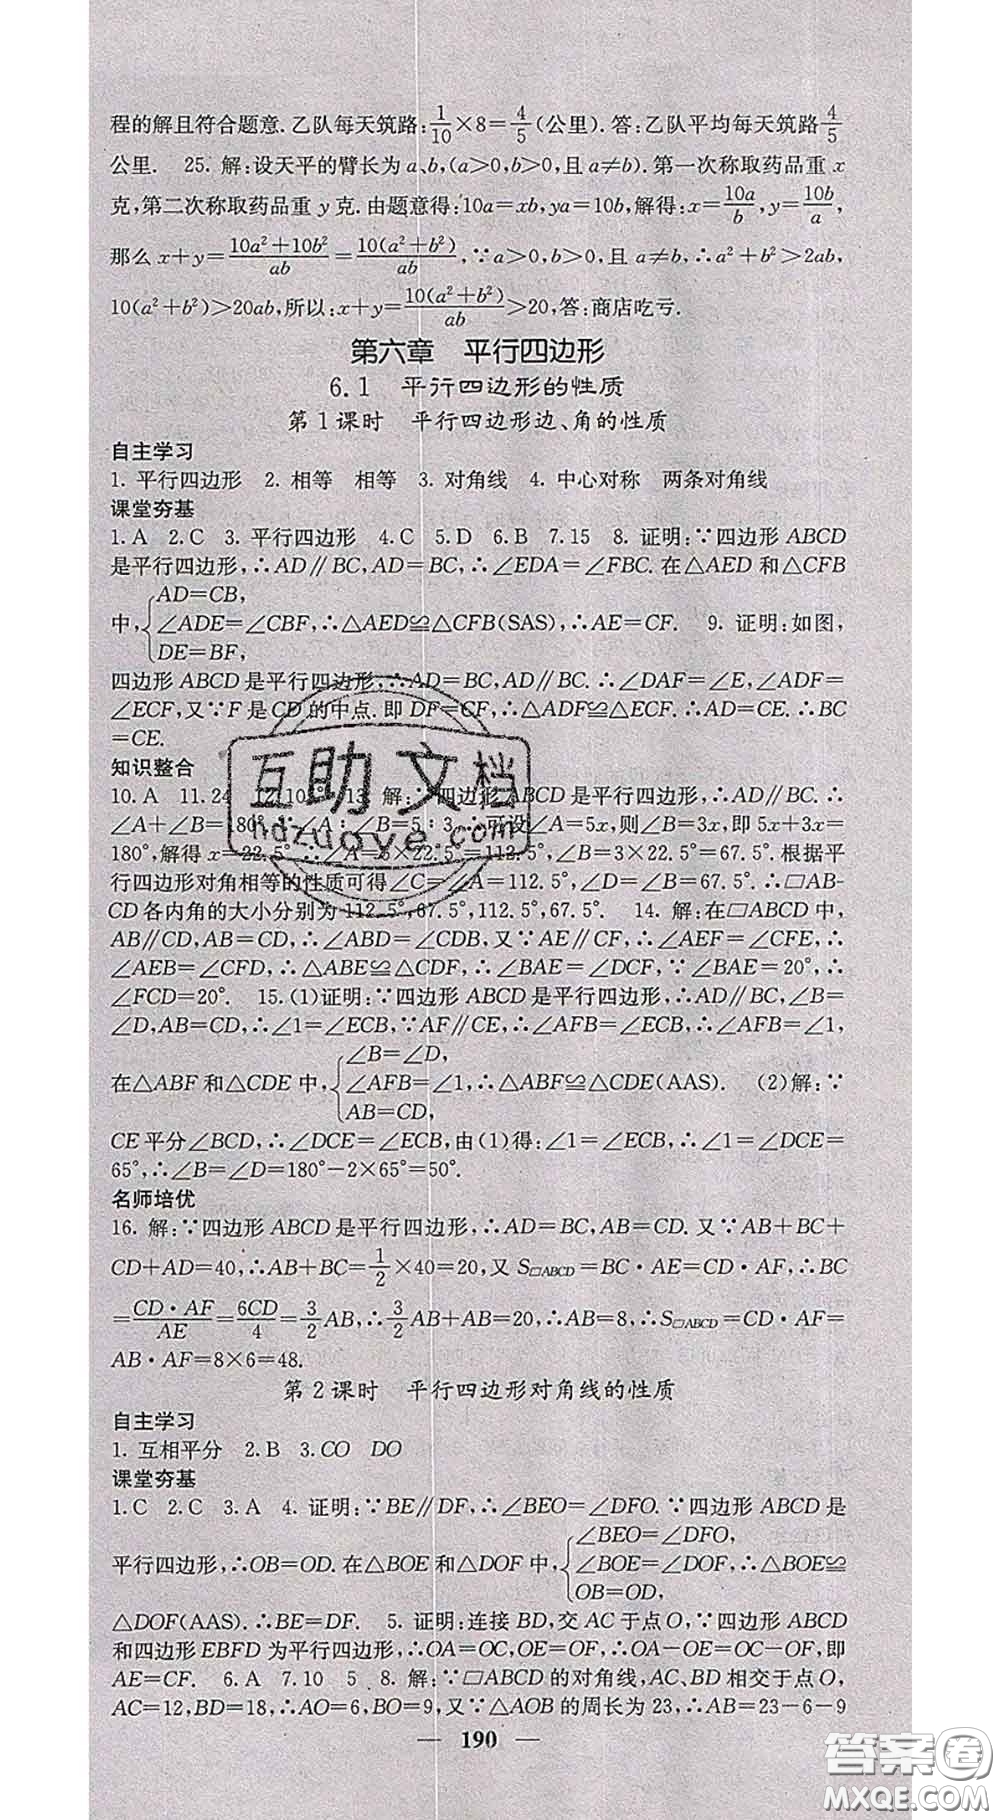 程的解且符合题意.乙队每天筑路:1/10×8=4/5(公里).答:乙队平均每天筑路4/5
公里. 25. 解:设天平的臂长为a、b,(a>0,b>0,且a≠b).第一次称取药品重x
克,第二次称取药品重y克.由题意得:10a=xb,ya=10b,解得:x=10a/b,y=10b/a,
那么x+y=(10a²+10b²)/ab=10(a²+b²)/ab,∵a>0,b>0,且a≠b,∴a²+b²>2ab,
10(a²+b²)>20ab,所以:x+y=10(a²+b²)/ab>20,答:商店吃亏.
第六章 平行四边形
6.1 平行四边形的性质
第1课时 平行四边形边、角的性质
自主学习
1. 平行四边形 2. 相等 相等 3. 对角线 4. 中心对称 两条对角线
课堂夯基
1. A 2. C 3. 平行四边形 4. C 5. D 6. B 7. 15 8. 证明:∵四边形ABCD
是平行四边形,∴AD∥BC,AD=BC,∴∠EDA=∠FBC.在△AED和△CFB
中,{AD=CB,
∠ADE=∠CBF,∴△AED≌△CFB(SAS),∴AE=CF. 9. 证明:如图,
DE=BF,
四边形ABCD是平行四边形,∴AD=BC,AD∥BC.∴∠DAF=∠E,∠ADF=
∠ECF,又∵F是CD的中点.即DF=CF,∴△ADF≌△ECF.∴AD=CE.∴BC
=CE.
知识整合
10. A 11. 24 12. 10 13. 解:∵四边形ABCD是平行四边形,∴AD∥BC.∴
∠A+∠B=180°.∵∠A∶∠B=5∶3,∴可设∠A=5x,则∠B=3x,即5x+3x=
180°,解得x=22.5°.∴∠A=5×22.5°=112.5°,∠B=3×22.5°=67.5°.根据平
行四边形对角相等的性质可得∠C=∠A=112.5°,∠D=∠B=67.5°.∴□AB-
CD各内角的大小分别为112.5°,67.5°,112.5°,67.5°. 14. 解:在□ABCD中,
AB∥CD,AB=CD,∴∠ABD=∠CDB,又∵AE∥CF,∴∠AEF=∠CFE,∴
∠AEB=∠CFD,∴△ABE≌△CDF,∴∠BAE=∠DCF,∵∠BAE=20°,∴
∠FCD=20°. 15. (1)证明:∵四边形ABCD是平行四边形,∴AD∥BC,∠B=
∠D,AB=CD,∴∠1=∠ECB,∵AF∥CE,∴∠AFB=∠ECB,∴∠AFB=∠1,
在△ABF和△CDE中,{∠B=∠D,
∠AFB=∠1,∴△ABF≌△CDE(AAS). (2)解:∵
AB=CD,
CE平分∠BCD,∴∠DCE=∠ECB,由(1)得:∠1=∠ECB,∴∠1=∠DCE=
65°,∴∠B=∠D=180°-2×65°=50°.
名师培优
16. 解:∵四边形ABCD是平行四边形,∴AD=BC,AB=CD.又∵AB+BC+
CD+AD=40,∴AB+BC=1/2×40=20,又S□ABCD=BC·AE=CD·AF,∴BC
=CD·AF/AE=6CD/4=3/2AB,∴3/2AB+AB=20,∴AB=8,∴S□ABCD=CD·AF=
AB·AF=8×6=48.
第2课时 平行四边形对角线的性质
自主学习
1. 互相平分 2. B 3. CO DO
课堂夯基
1. C 2. C 3. A 4. 证明:∵BE∥DF,∴∠BEO=∠DFO.∵四边形ABCD是
平行四边形,∴OB=OD.在△BOE和△DOF中,{∠BEO=∠DFO,
∠BOE=∠DOF,∴△BOE≌
OB=OD,
△DOF(AAS).∴BE=DF. 5. 证明:连接BD,交AC于点O,∵四边形ABCD
和四边形EBFD为平行四边形,∴OA=OC,OE=OF,∴OA-OE=OC-OF,即
AE=CF. 6. A 7. 10 5 8. 解:∵□ABCD的对角线,AC、BD相交于点O,
AC=12,BD=18,∴AO=6,BO=9,又∵△AOB的周长为23,∴AB=23-6-9
— 190 —
互助文档
hdzuoye.com
答案圈
MXQE.COM